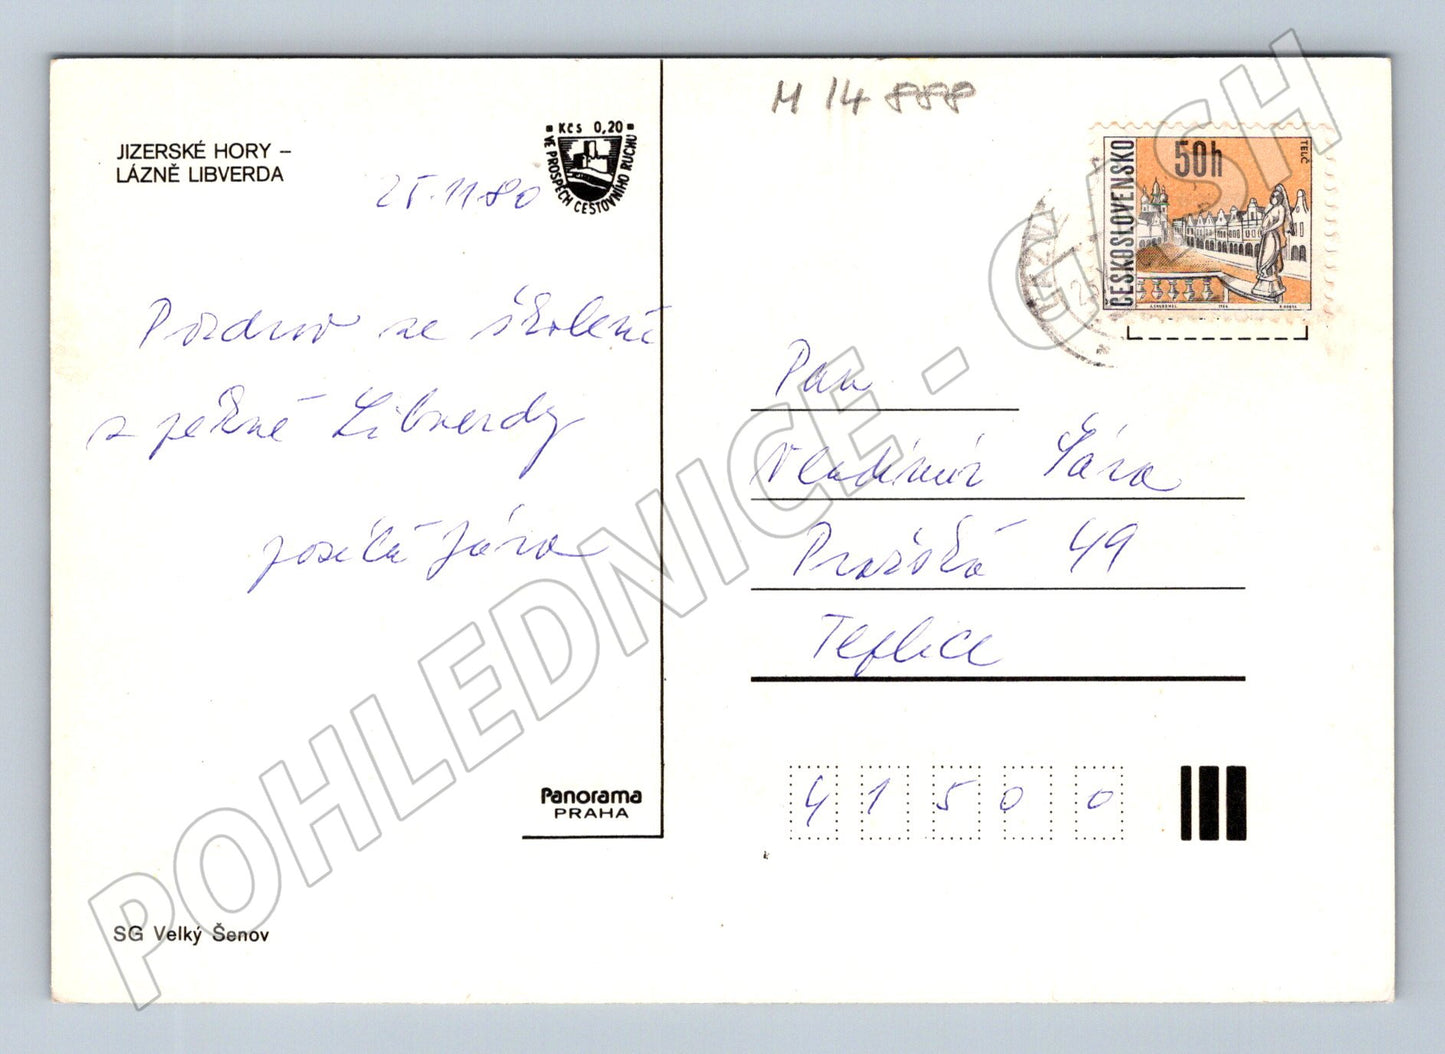 JIZERSKÉ HORY –
LÁZNĚ LIBVERDA
Kčs 0,20
VE PROSPĚCH CESTOVNÍHO RUCHU
25.11.80
M 14 888
ČESKOSLOVENSKO
50h
TELČ
Pozdrav ze školení
z pěkné Libverdy
posílá Jára
Pan
Vladimír
Pražská 49
Teplice
41500
Panorama
PRAHA
SG Velký Šenov
POHLEDNICE - CASH